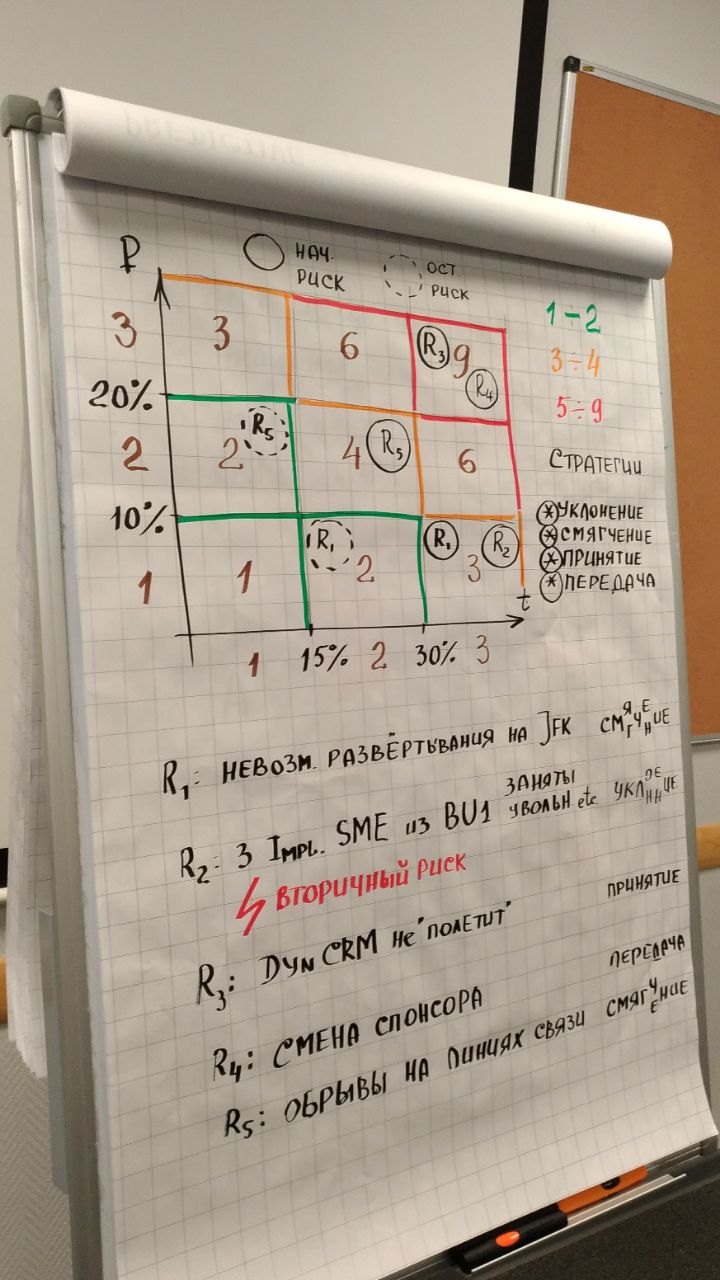 P
НАЧ. РИСК
ОСТ. РИСК
3 3 6 R3 9 R4
1÷2
3÷4
5÷9
20%
2 2 R5 4 R5 6
СТРАТЕГИИ
10%
* УКЛОНЕНИЕ
* СМЯГЧЕНИЕ
* ПРИНЯТИЕ
* ПЕРЕДАЧА
1 1 R1 2 R1 3 R2
t
1 15% 2 30% 3
R1: НЕВОЗМ. РАЗВЁРТЫВАНИЯ НА JFK СМЯГЧЕНИЕ
R2: 3 IMPL. SME ИЗ BU1 ЗАНЯТЫ УВОЛЬН. etc. УКЛОНЕНИЕ
ВТОРИЧНЫЙ РИСК
R3: DYN CRM НЕ "ПОЛЕТИТ" ПРИНЯТИЕ
R4: СМЕНА СПОНСОРА ПЕРЕДАЧА
R5: ОБРЫВЫ НА ЛИНИЯХ СВЯЗИ СМЯГЧЕНИЕ